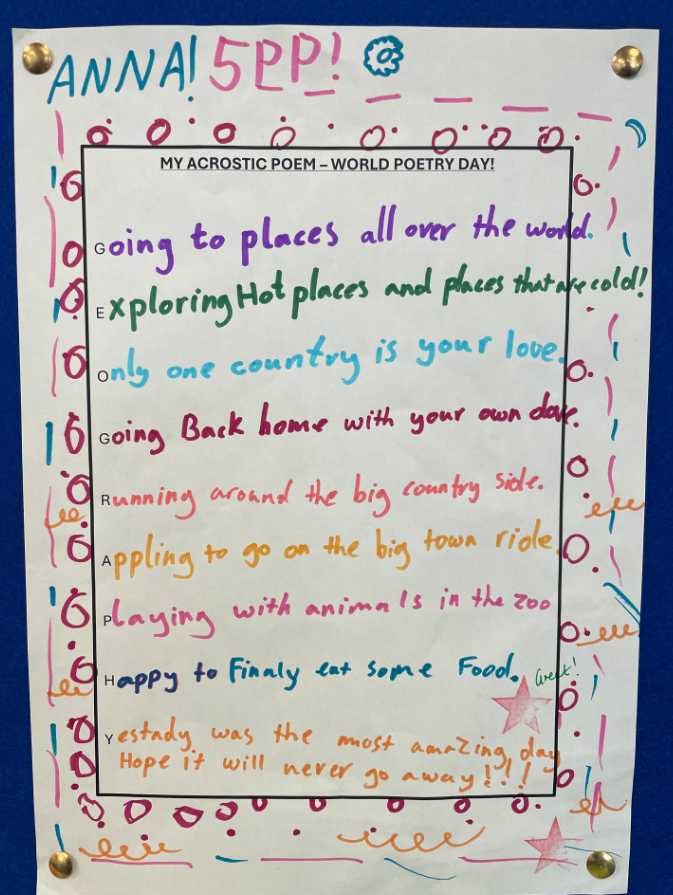 ANNA! 5PP!
MY ACROSTIC POEM – WORLD POETRY DAY!
Going to places all over the world.
Exploring Hot places and places that are cold!
Only one country is your love.
Going Back home with your own dove.
Running around the big country side.
Appling to go on the big town ride.
Playing with animals in the zoo
Happy to Finaly eat some Food.
Great!
Yestady was the most amaZing day
Hope it will never go away!!!